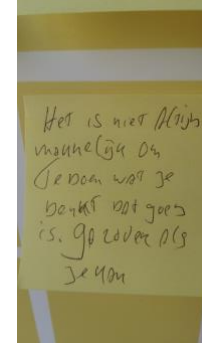 Het is niet altijd
makkelijk om
te doen wat je
denkt dat goed
is. Ga zover als
je kan